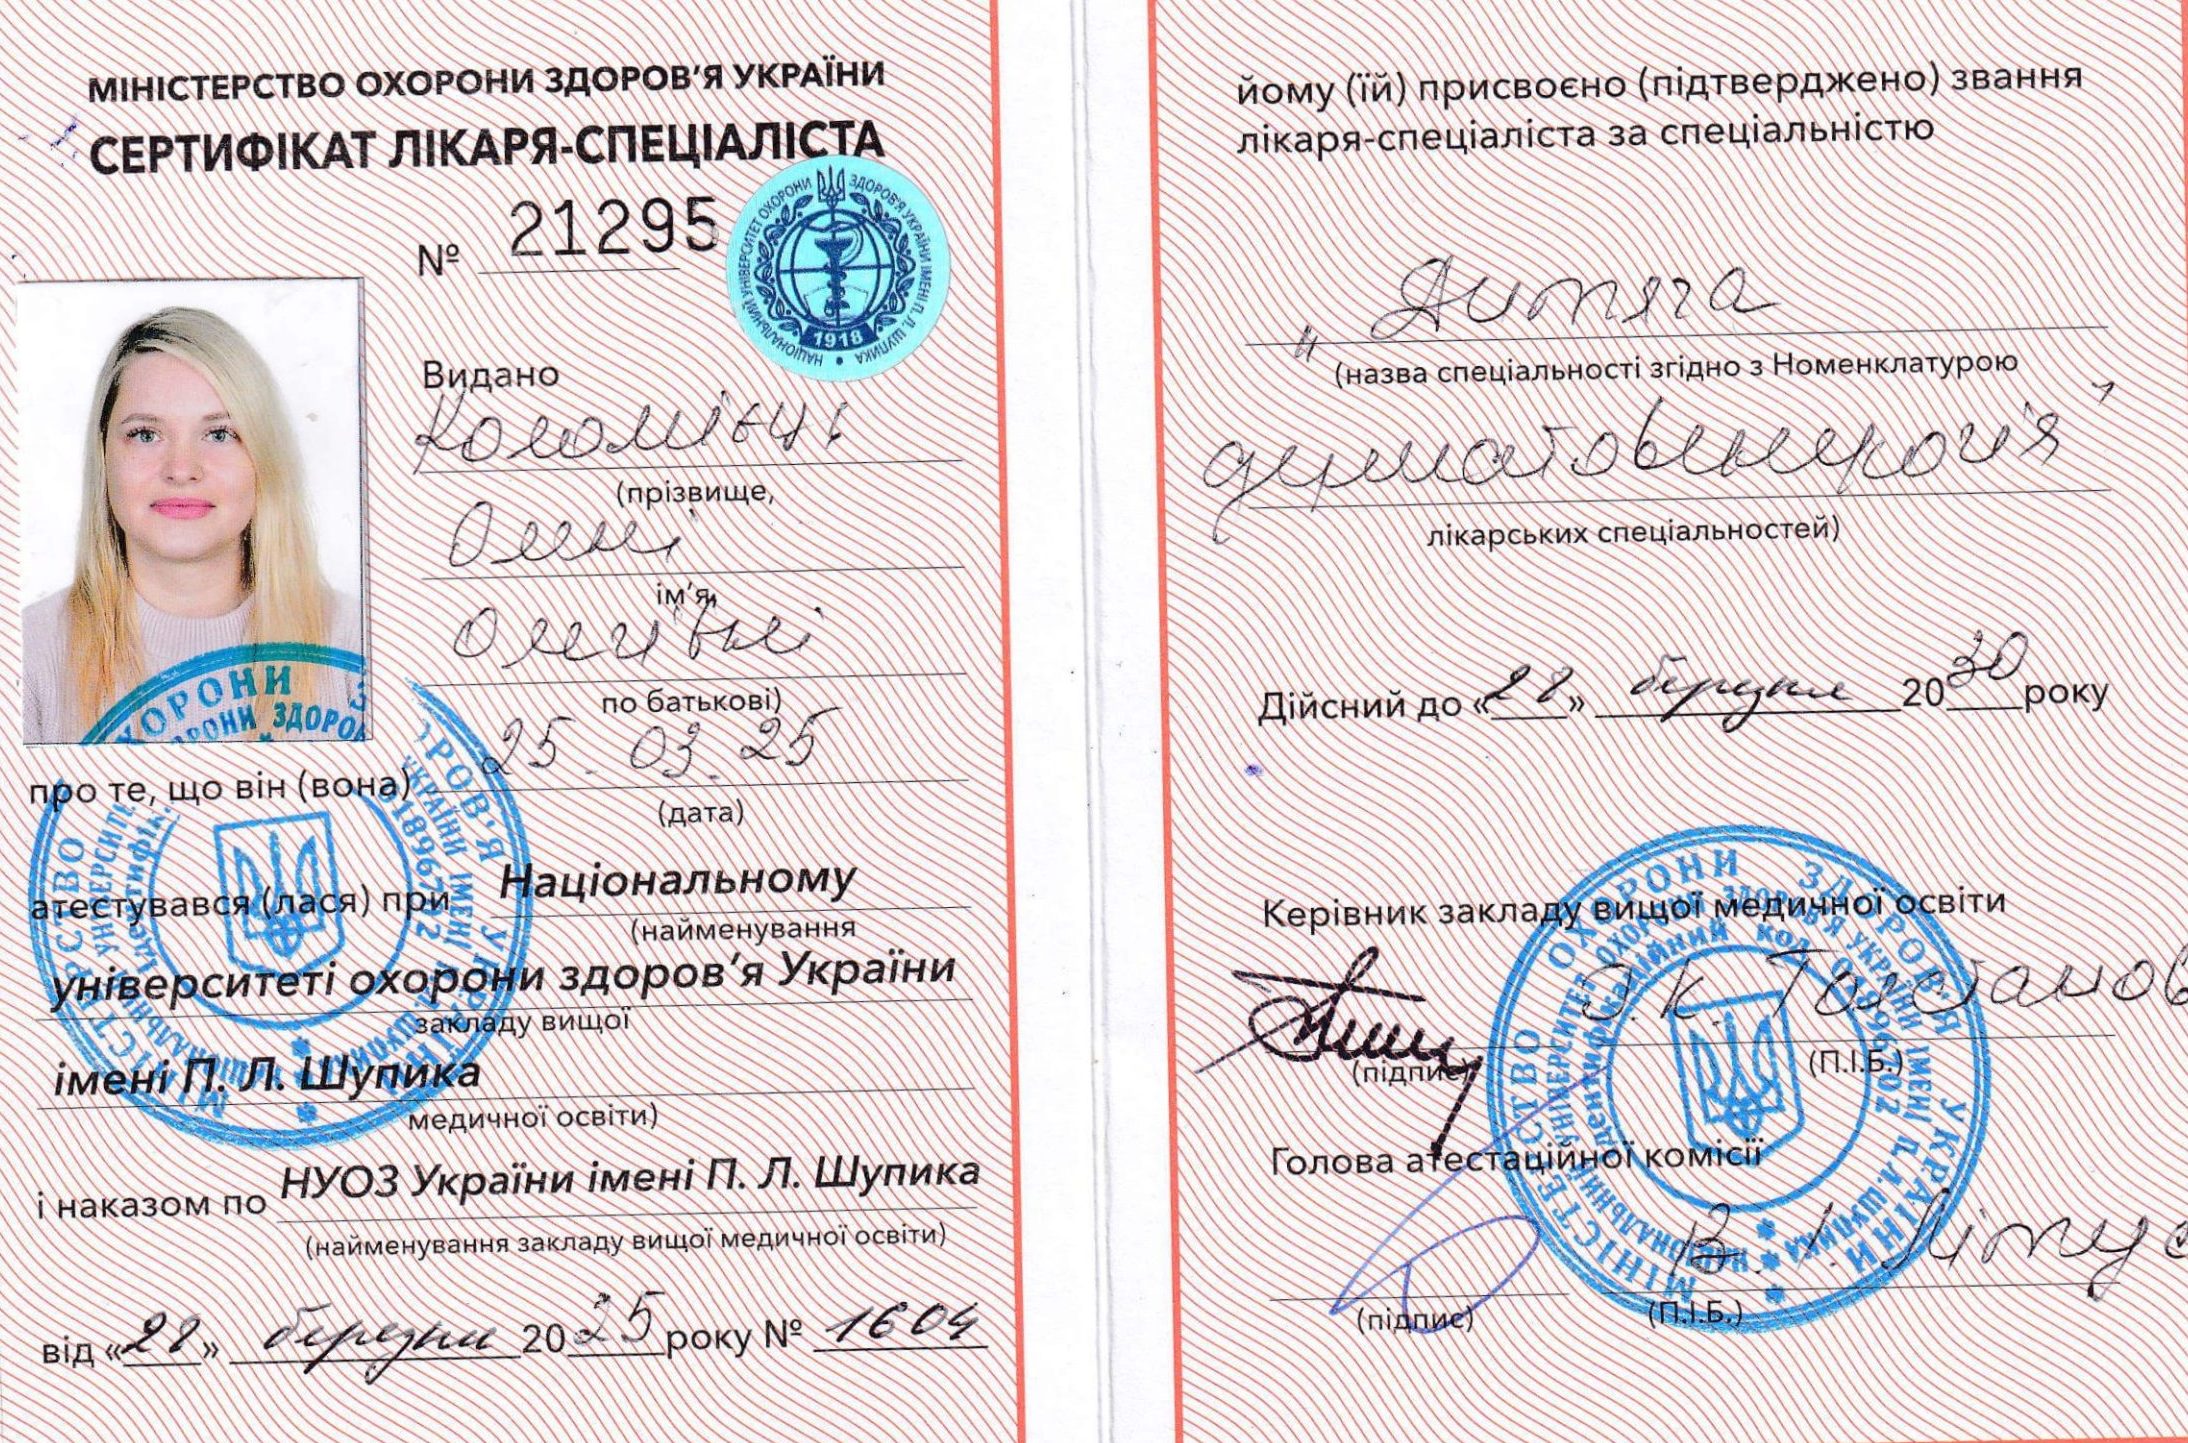 МІНІСТЕРСТВО ОХОРОНИ ЗДОРОВ'Я УКРАЇНИ
СЕРТИФІКАТ ЛІКАРЯ-СПЕЦІАЛІСТА
№ 21295
НАЦІОНАЛЬНИЙ УНІВЕРСИТЕТ ОХОРОНИ ЗДОРОВ'Я УКРАЇНИ ІМЕНІ П. Л. ШУПИКА
1918
Видано
Коломієць
(прізвище,
Олені
ім'я,
Олегівні
по батькові)
25.03.25
про те, що він (вона)
(дата)
атестувався (лася) при Національному
(найменування
університеті охорони здоров'я України
закладу вищої
імені П. Л. Шупика
медичної освіти)
і наказом по НУОЗ України імені П. Л. Шупика
(найменування закладу вищої медичної освіти)
від «28» березня 2025 року № 1604
йому (їй) присвоєно (підтверджено) звання
лікаря-спеціаліста за спеціальністю
"Дитяча
(назва спеціальності згідно з Номенклатурою
дерматовенерологія"
лікарських спеціальностей)
Дійсний до «28» березня 2030 року
Керівник закладу вищої медичної освіти
О.К. Толстанов
(підпис) (П.І.Б.)
Голова атестаційної комісії
В. І.
(підпис) (П.І.Б.)
МІНІСТЕРСТВО ОХОРОНИ ЗДОРОВ'Я УКРАЇНИ
НАЦІОНАЛЬНИЙ УНІВЕРСИТЕТ ОХОРОНИ ЗДОРОВ'Я УКРАЇНИ ІМЕНІ П.Л. ШУПИКА
Ідентифікаційний код 01896702